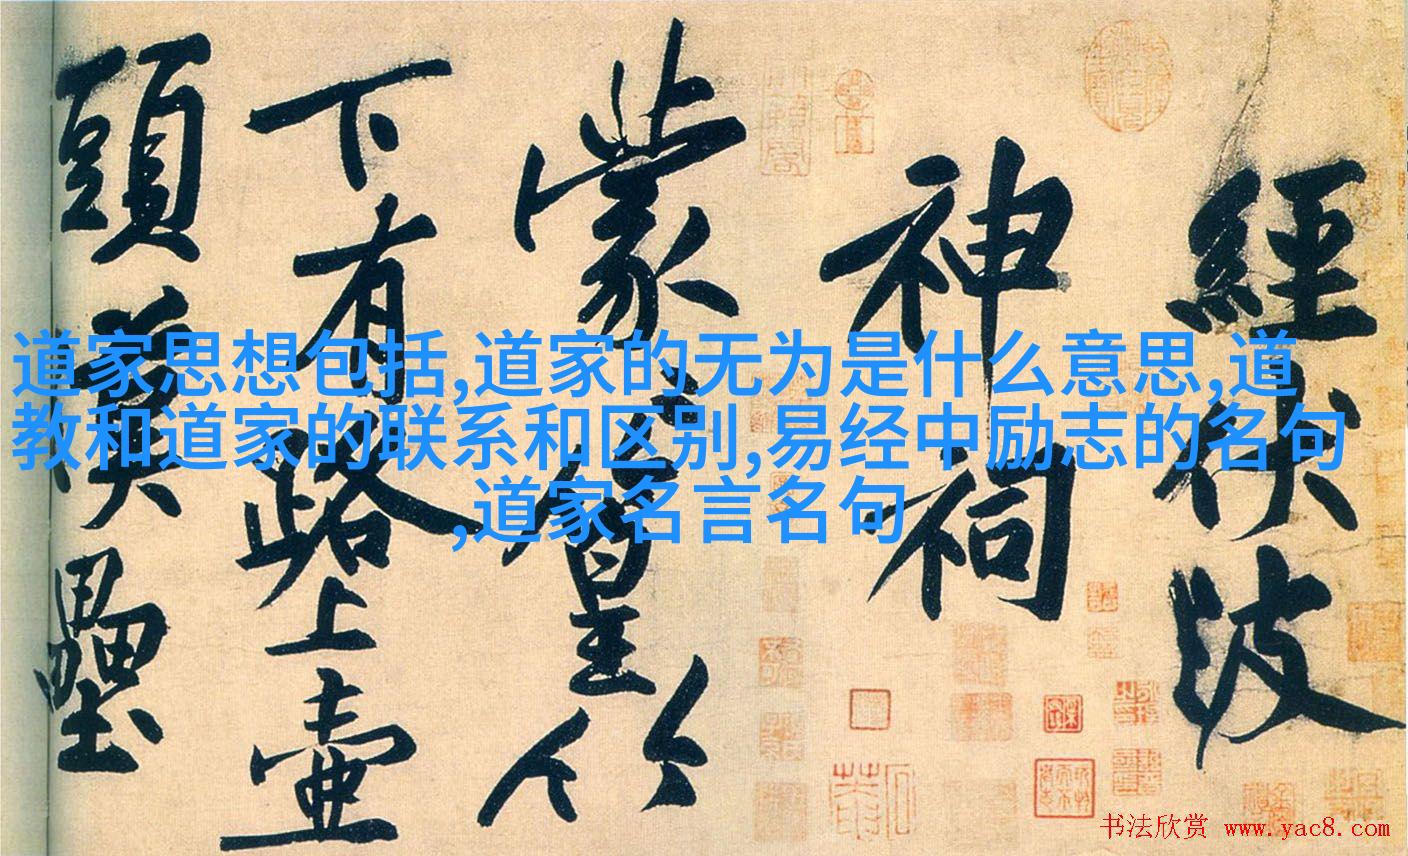 經伏波
神祠
蒙〻篁竹
下有路上壺
頭漢壘
道家思想包括,道家的无为是什么意思,道
教和道家的联系和区别,易经中励志的名句
,道家名言名句
书法欣赏 www.yac8.com